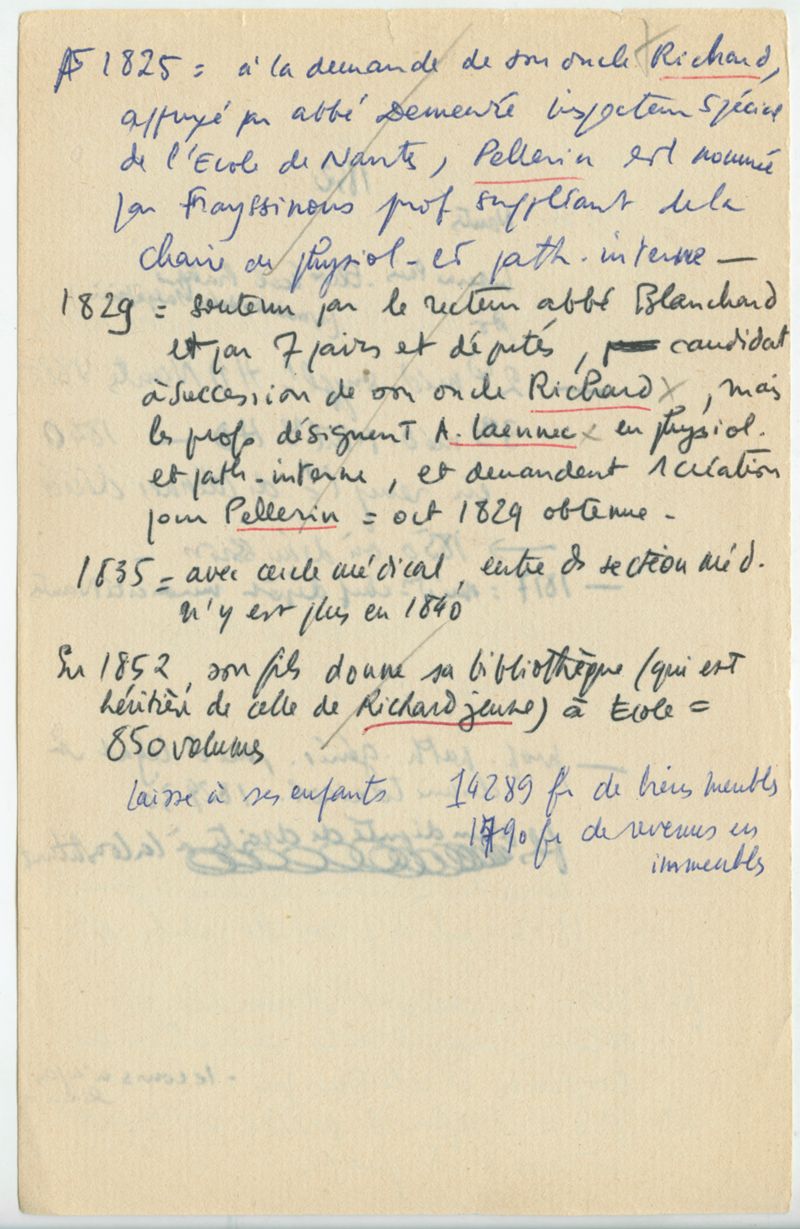 1825 = à la demande de son oncle Richard,
appuyé par abbé Demeuré inspecteur spécial
de l'Ecole de Nantes, Pellerin est nommé
par Frayssinous prof suppléant de la
chaire de physiol- et path. interne —
1829 = soutenu par le recteur abbé Blanchard
et par 7 pairs et députés, candidat
à succession de son oncle Richard x, mais
les profs désignent A. Laennec x en physiol.
et path-interne, et demandent 1 création
pour Pellerin = oct 1829 obtenue -
1835 = avec cercle médical, entre ds section méd.
n'y est plus en 1840
En 1852, son fils donne sa bibliothèque (qui est
héritière de celle de Richard jeune) à Ecole =
850 volumes
Laisse à ses enfants 14289 fr de biens meubles
1790 fr de revenus en
immeubles